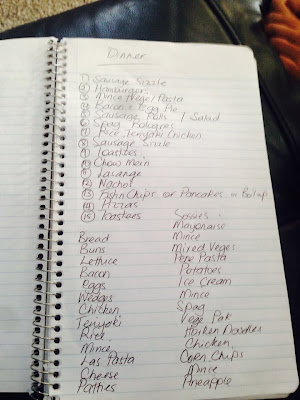 Dinner
1 Sausage Sizzle
2 Hamburgers
3 Mince Vege / Pasta
4 Bacon & Egg Pie
5 Sausage Rolls / Salad
6 Spag Bolognes
7 Rice Teriyaki Chicken
8 Sausage Sizzle
9 Toasties
10 Chow Mein
11 Lasange
12 Nachos
13 Fish n Chips or Pancakes or Boil up
14 Pizzas
15 Toastees
Bread
Buns
Lettuce
Bacon
Eggs
Wedges
Chicken
Teriyaki
Rice
Mince
Las Pasta
Cheese
Patties
Sossies
Mayonaise
Mince
Mixed Veges
Pepe Pasta
Potatoes
Ice Cream
Mince
Spag
Vege Pak
Noodles
Chicken
Corn Chips
Mince
Pineapple